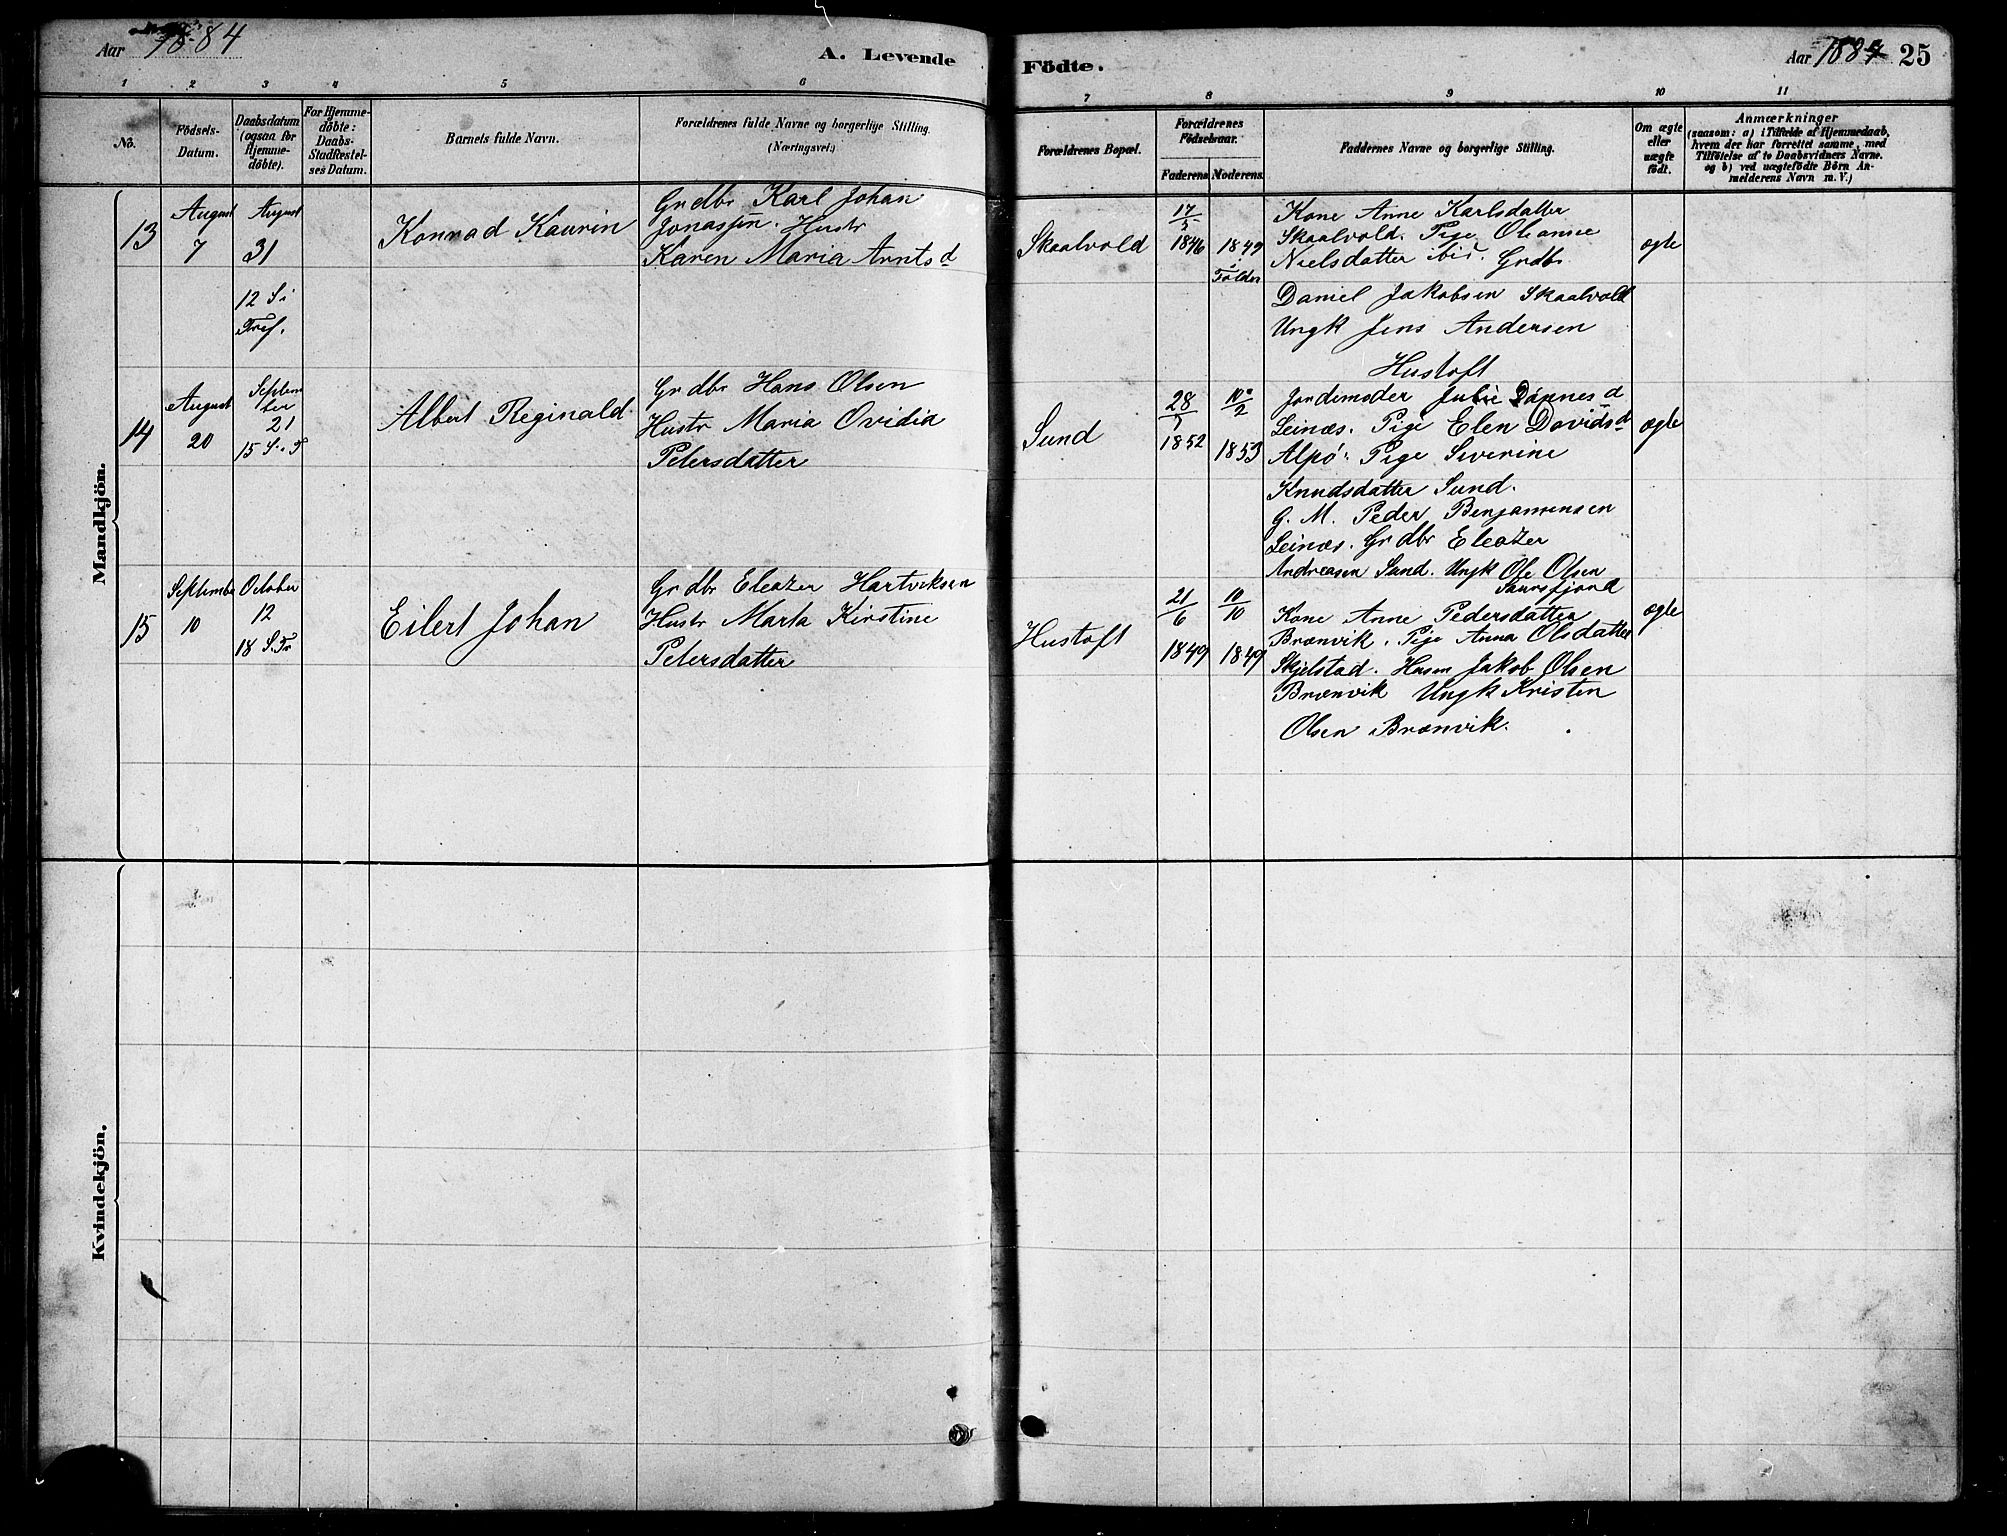 Aar 1884
A. Levende
Födte.
Aar 1884 25
1 2 3 4 5 6 7 8 9 10 11
No.
Födsels-
Datum.
Daabsdatum
(ogsaa for
Hjemme-
döbte).
For Hjemme-
döbte:
Daabs-
Stadfæstel-
ses Datum.
Barnets fulde Navn.
Forældrenes fulde Navne og borgerlige Stilling.
(Næringsvei.)
Forældrenes Bopæl.
Forældrenes
Födselsaar.
Faderens. Moderens.
Faddernes Navne og borgerlige Stilling.
Om ægte
eller
uægte
födt.
Anmærkninger
(saasom: a) i Tilfælde af Hjemmedaab,
hvem der har forrettet samme, med
Tilföielse af to Daabsvidners Navne.
og b) ved uægtefödte Börn An-
melderens Navn m. V.)
Mandkjön.
13
August
7
August
31
12 S. i
Tref.
Konrad Kaurin
Grdbr. Karl Johan
Jonassen. Hustr
Karen Maria Arntsd
Skaalvold
17/5
1846
1849
i
Folden
Kone Anne Karlsdatter
Skaalvold. Pige Oleanne
Nielsdatter ibid. Grdbr
Daniel Jakobsen Skaalvold
Ungk Jens Andersen
Hustoft
ægte
14
August
20
Septem
ber
21
15 S. i T
Albert Reginald
Grdbr Hans Olsen
Hustr Maria Ovidia
Petersdatter
Sund
28
1852
10/2
1853
Jordemoder Julie
Leines. Pige Elen Davidsd
Alpö. Pige Severine
Knudsdatter Sund.
G. M. Peder Benjaminsen
Leines. Grdbr Eleazer
Andreasen Sund. Ungk Ole Olsen
Saursfjord
ægte
15
Septembe
10
October
12
18 S. Tr
Eilert Johan
Grdbr Eleazer Hartviksen
Hustr Marta Kirstine
Petersdatter
Hustoft
21/6
1849
10/10
1849
Kone Anne Pedersdatter
Brænvik. Pige Anna Olsdatter
Skjelstad. Husm Jakob Olsen
Brænvik Ungk Kristen
Olsen Brænvik.
ægte
Kvindekjön.